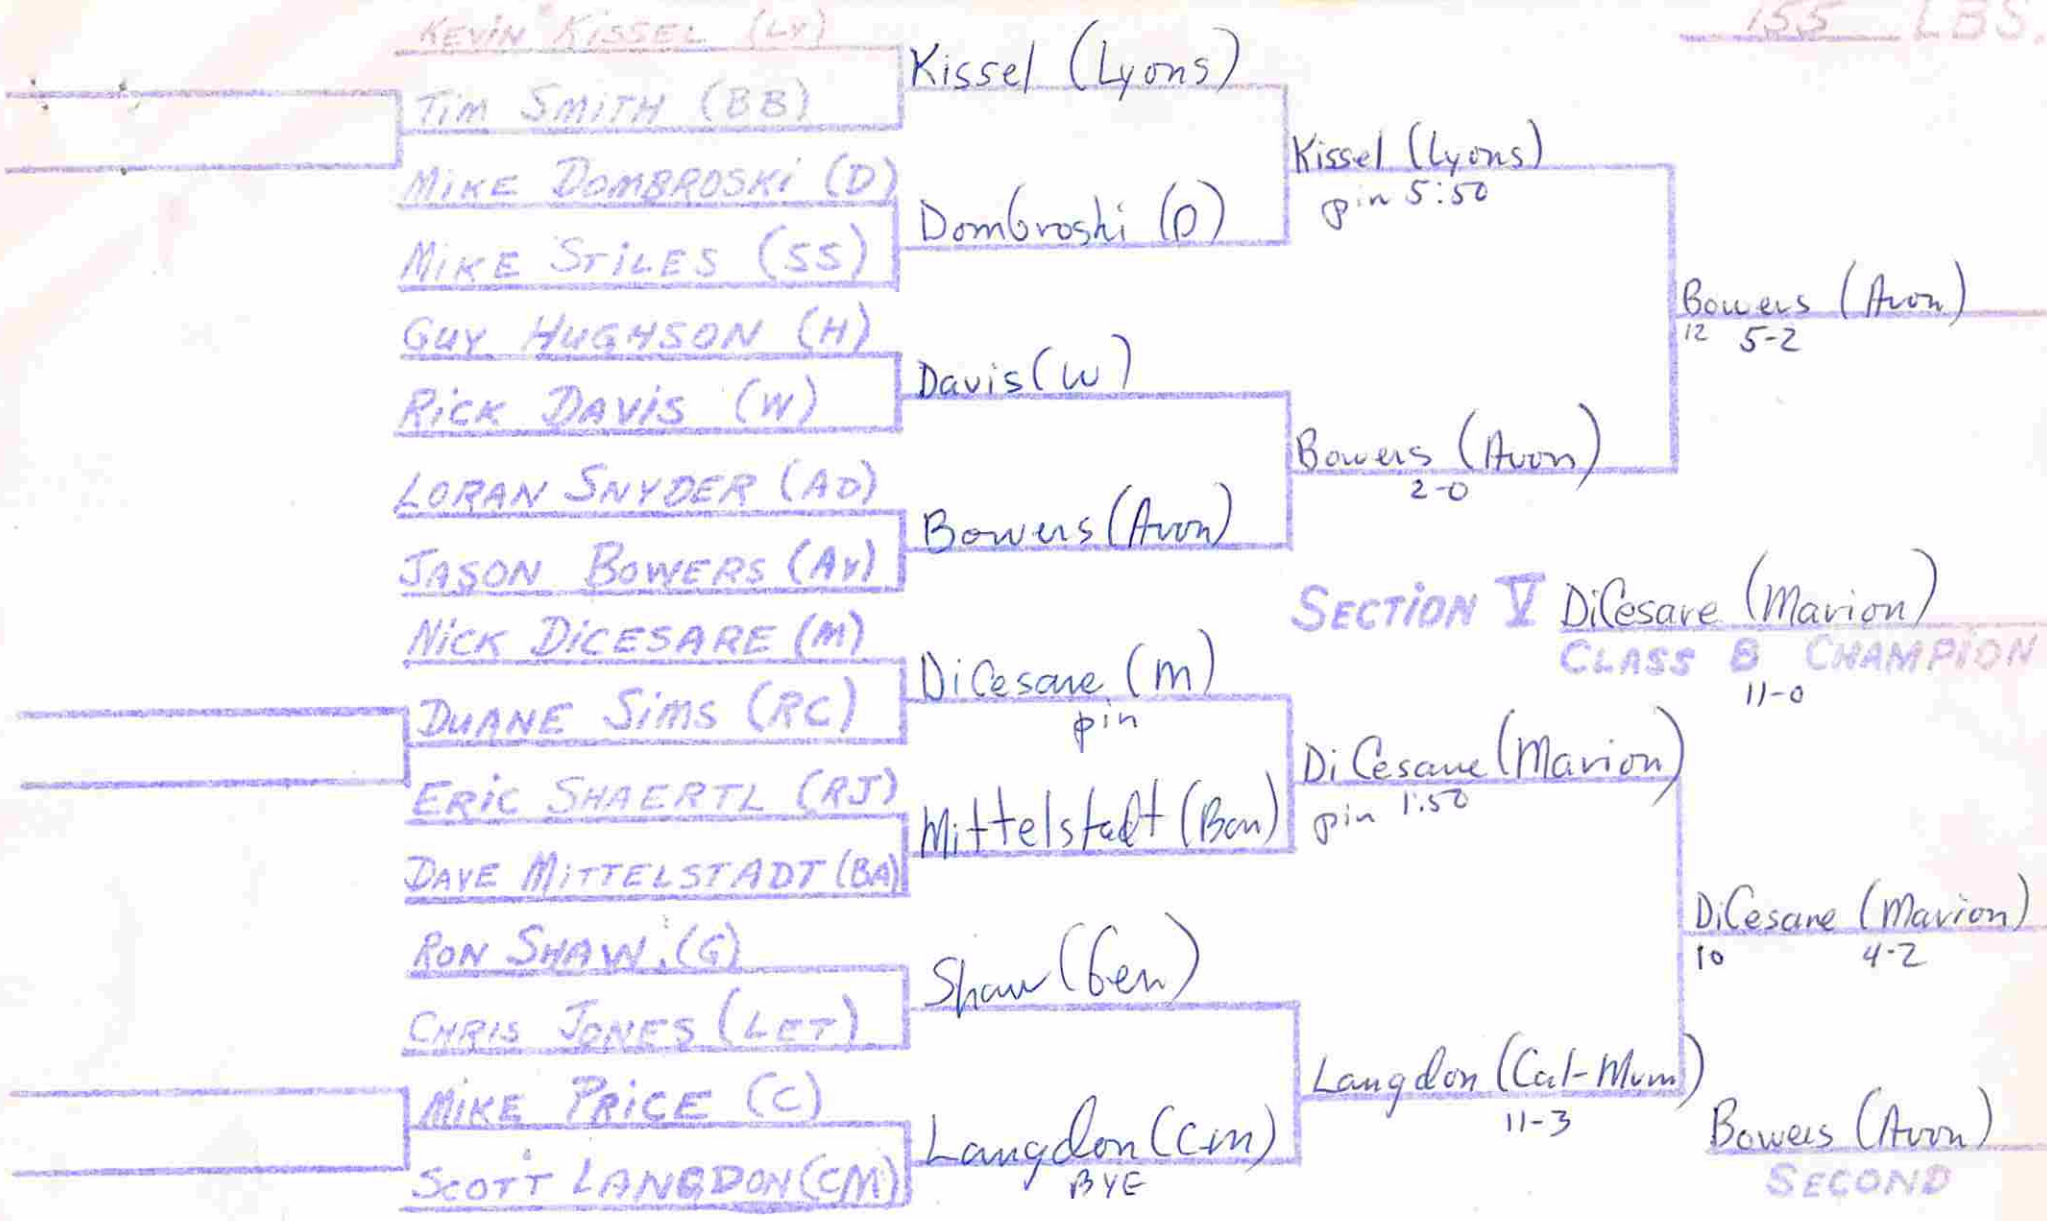 155 LBS.
KEVIN KISSEL (LY)
TIM SMITH (BB)
MIKE DOMBROSKI (D)
MIKE STILES (SS)
GUY HUGHSON (H)
RICK DAVIS (W)
LORAN SNYDER (AD)
JASON BOWERS (AV)
NICK DICESARE (M)
DUANE SIMS (RC)
ERIC SHAERTL (RJ)
DAVE MITTELSTADT (BA)
RON SHAW (G)
CHRIS JONES (LET)
MIKE PRICE (C)
SCOTT LANGDON (CM)
Kissel (Lyons)
Dombroski (D)
Davis (W)
Bowers (Avon)
DiCesare (M)
pin
Mittelstadt (Ban)
Shaw (Gen)
Langdon (CM)
BYE
Kissel (Lyons)
pin 5:50
Bowers (Avon)
2-0
DiCesare (Marion)
pin 1:50
Langdon (Cal-Mum)
11-3
Bowers (Avon)
12 5-2
SECTION V DiCesare (Marion)
CLASS B CHAMPION
11-0
DiCesare (Marion)
10 4-2
Bowers (Avon)
SECOND